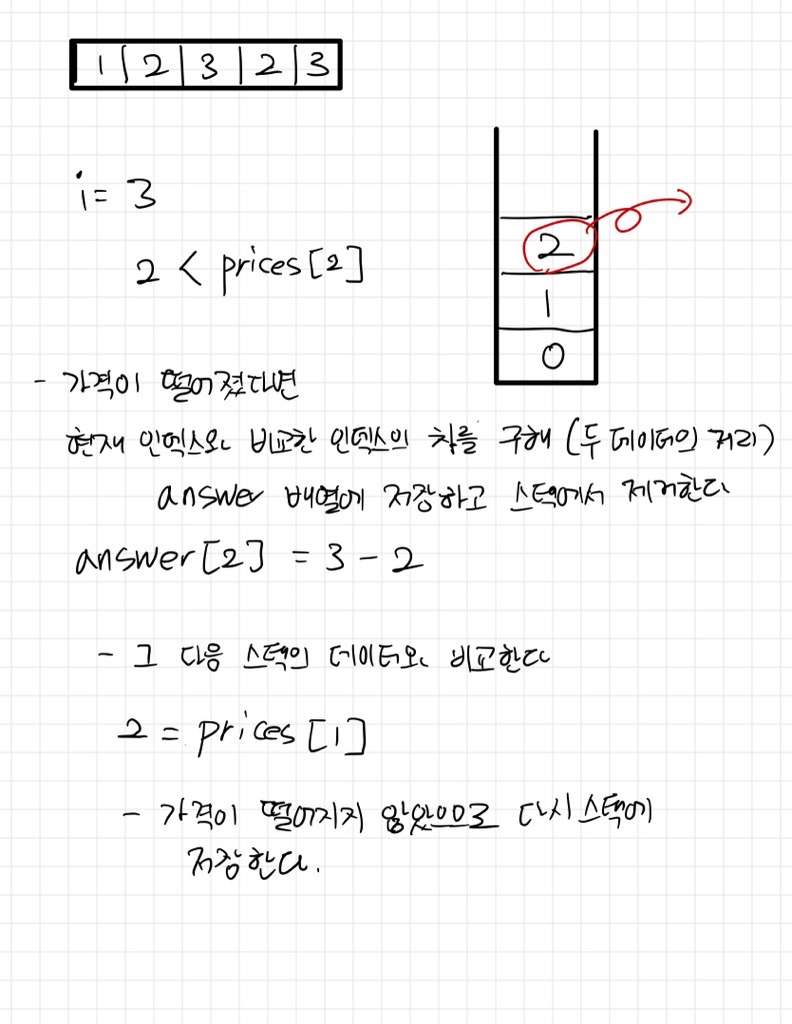 1 | 2 | 3 | 2 | 3
i = 3
2 < prices[2]
2
1
0
- 가격이 떨어졌다면
현재 인덱스와 비교한 인덱스의 차를 구해 (두 데이터의 거리)
answer 배열에 저장하고 스택에서 제거한다
answer[2] = 3 - 2
- 그 다음 스택의 데이터와 비교한다
2 = prices[1]
- 가격이 떨어지지 않았으므로 다시 스택에
저장한다.